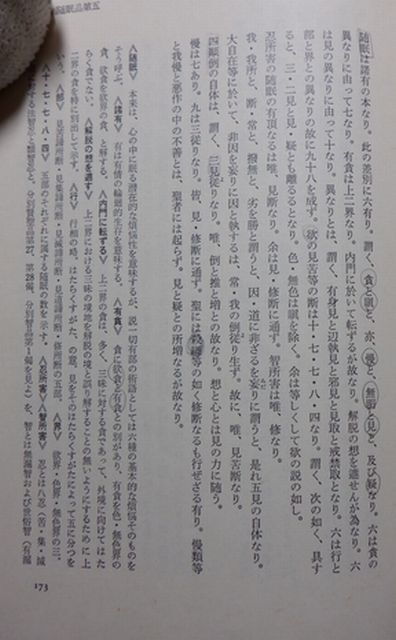 随眠品第五
随眠は諸有の本なり。此の差別に六有り。謂く、貪と瞋と、亦、慢と、無明と見と、及び疑なり。六は貪の
異なりに由って七なり。有貪は上二界なり。内門に於いて転ずるが故なり。解脱の想を遮せんが為なり。六
は見の異なりに由って十なり。異なりとは、謂く、有身見と辺執見と邪見と見取と戒禁取となり。六は行と
部と界との異なりの故に九十八を成ず。欲の見苦等の断は十・七・七・八・四なり。謂く、次の如く、具す
ると、三・二見と見・疑とを離るるとなり。色・無色は瞋を除く。余は等しくして欲の説の如し。
忍所害の随眠の有頂なるは唯、見断なり。余は見・修断に通ず。智所害は唯、修なり。
我・我所と、断・常と、撥無と、劣を勝と謂うと、因・道に非ざるを妄りに謂うと、是れ五見の自体なり。
大自在等に於いて、非因を妄りに因と執するは、常・我の倒従り生ず。故に、唯、見苦断なり。
四顚倒の自体は、謂く、三見従りなり。唯、倒と推と増との故なり。想と心とは見の力に随う。
慢は七あり。九は三従りなり。皆、見・修断に通ず。聖には殺纏等の如く修断なるも行ぜざる有り。慢類等
と我慢と悪作の中の不善とは、聖者には起らず。見と疑との所増なるが故なり。
〈随眠〉 本来は、心の中に眠る潜在的な煩悩性を意味するが、説一切有部の術語としては六種の基本的な煩悩そのものを
そう呼ぶ。〈諸有〉 有は有情の輪廻的生存を意味する。〈有貪〉 貪に欲貪と有貪との別があり、有貪を色・無色界の
貪、欲貪を欲界の貪、と釈する。〈内門に転ずる〉 上二界の貪は、多く、三昧に対する貪であって、外境に向けてはた
らく貪でない。〈解脱の想を遮す〉 上二界における三昧の境地を解脱の境と誤りすることの無いようにするために上
二界の貪を特に別出して示す。〈行〉 行相の略、はたらくすがた、の意。見をそのはたらくすがたによって五に分つを
いう。〈部〉 見苦諦所断・見集諦所断・見滅諦所断・見道諦所断・修所断の五部。〈界〉 欲界・色界・無色界の三。
〈十・七・七・八・四〉 五部のそれぞれに属する随眠の数を示す。〈忍所害〉〈智所害〉 忍とは八忍（苦・集・滅
第27、第28偈、分別智品第1偈を見よ）を、智とは無漏智および世俗智（有漏
173